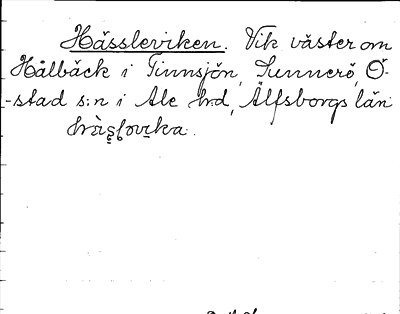 Hässleviken. Vik väster om
Hålbäck i Tinnsjön, Sunnerö, Ö-
-stad s:n i Ale hd, Älfsborgs län.